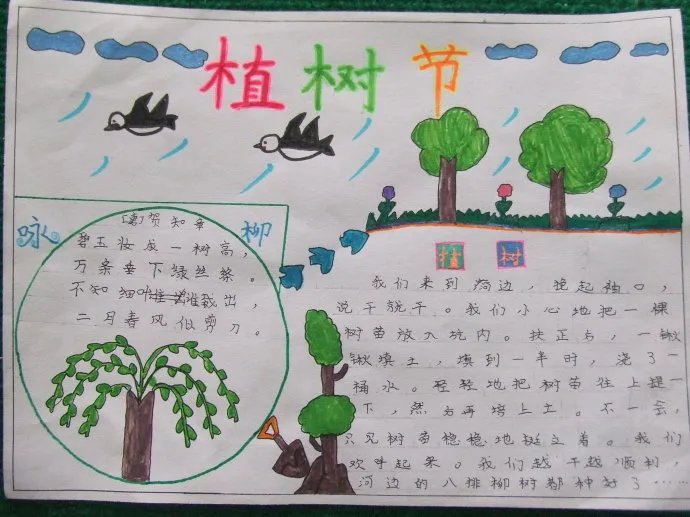 植树节
咏柳
[唐]贺知章
碧玉妆成一树高，
万条垂下绿丝绦。
不知细叶谁裁出，
二月春风似剪刀。
植树
我们来到河边，挽起袖口，
说干就干。我们小心地把一棵
树苗放入坑内。扶正后，一锹
锹填土，填到一半时，浇了一
桶水。轻轻地把树苗往上提一
下，然后再培上土。不一会，
只见树苗稳稳地挺立着。我们
欢呼起来。我们越干越顺利，
河边的八排柳树都种好了……